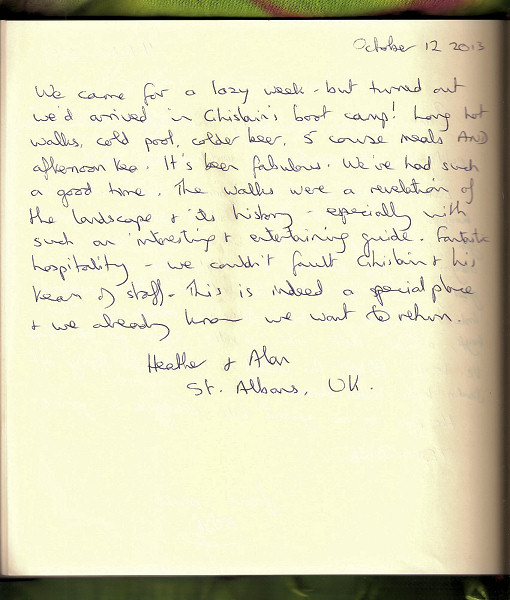 October 12 2013
We came for a lazy week - but turned out
we'd arrived in Ghislain's boot camp! Long hot
walks, cold pool, colder beer, 5 course meals AND
afternoon tea. It's been fabulous. We've had such
a good time. The walks were a revelation of
the landscape & its history - especially with
such an interesting & entertaining guide. Fantastic
hospitality - we couldn't fault Ghislain & his
team of staff. This is indeed a special place
& we already know we want to return.
Heather & Alan
St. Albans, UK.